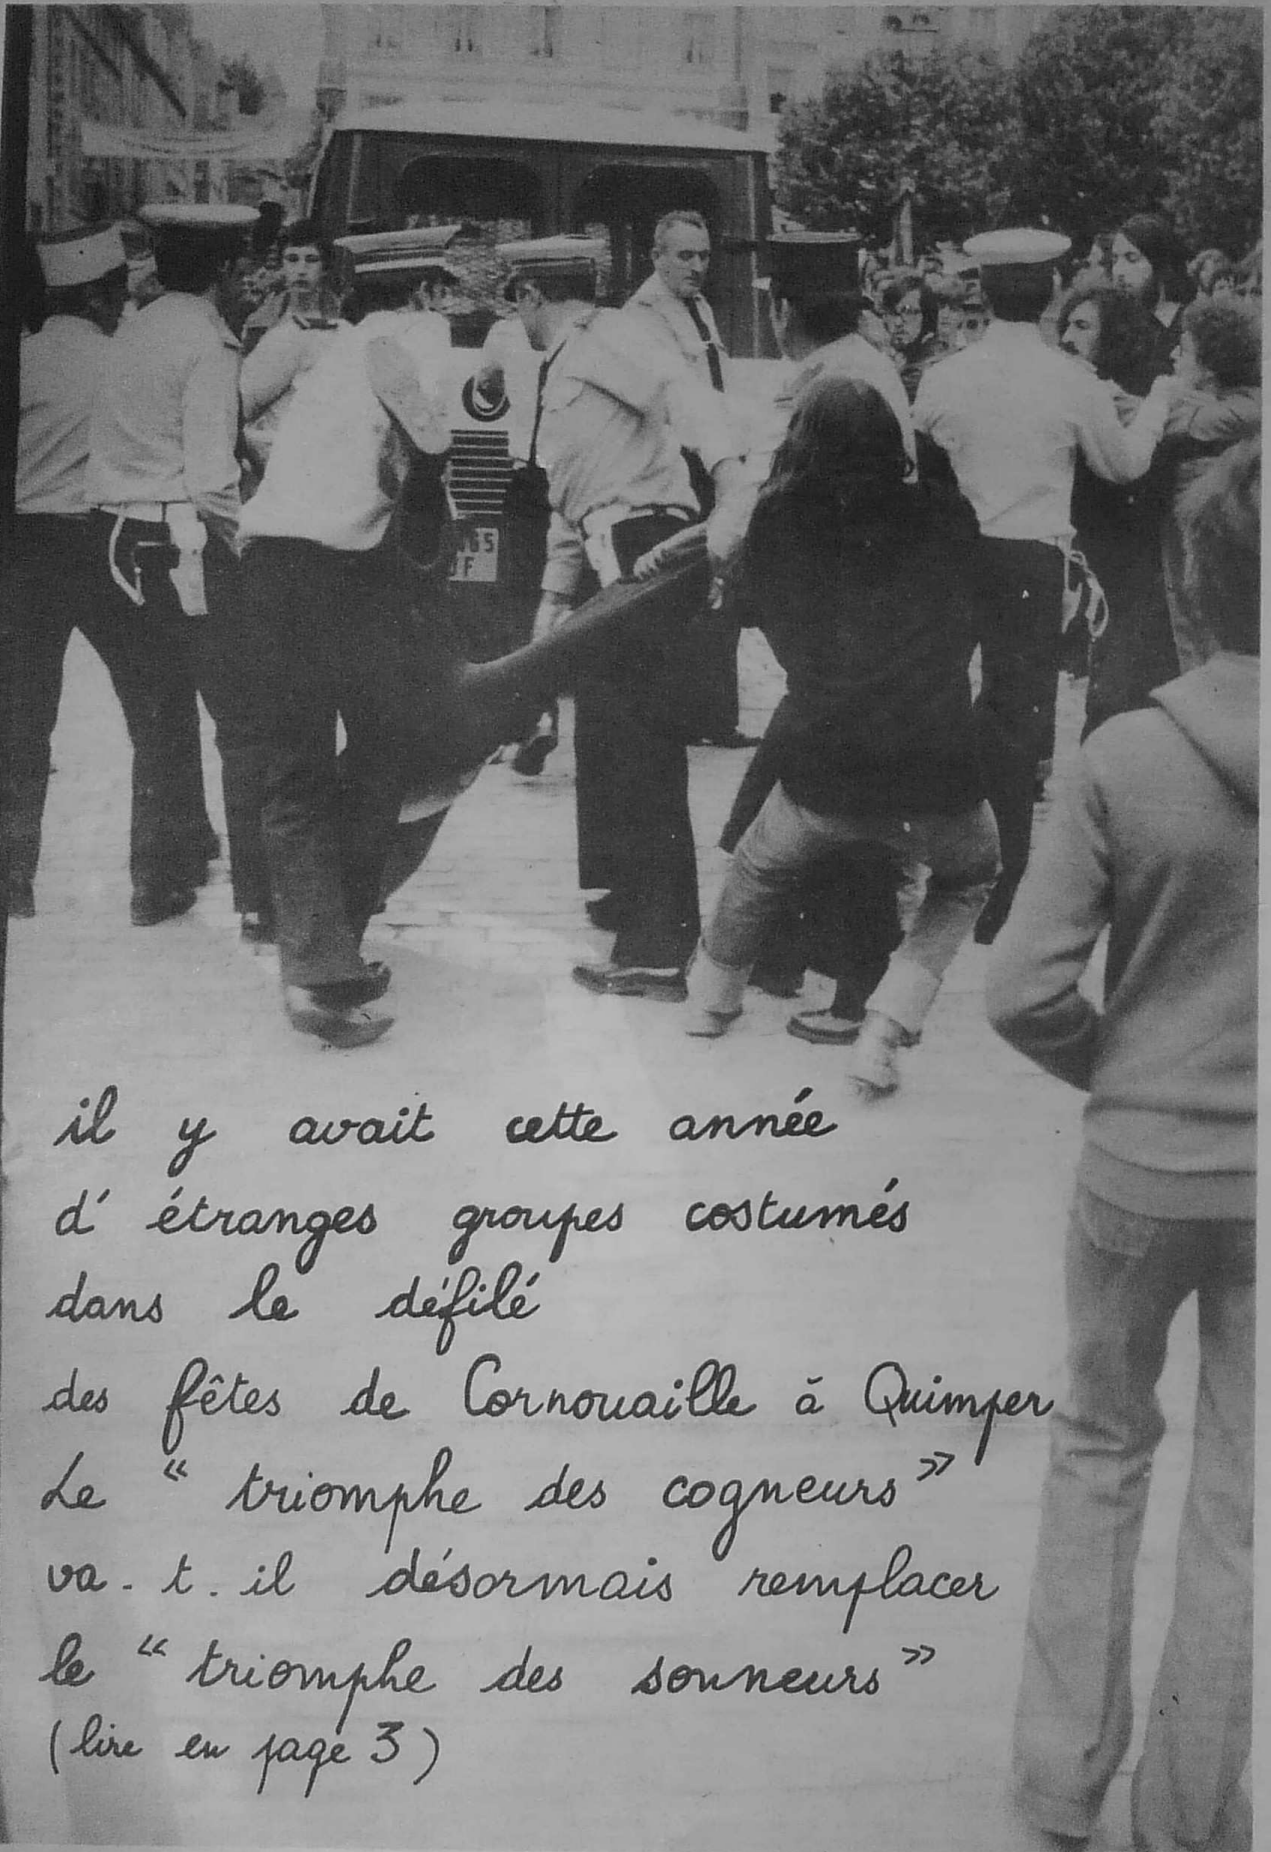 65
F
il y avait cette année
d' étranges groupes costumés
dans le défilé
des fêtes de Cornouaille à Quimper
Le " triomphe des cogneurs "
va. t. il désormais remplacer
le " triomphe des sonneurs "
(lire en page 3)